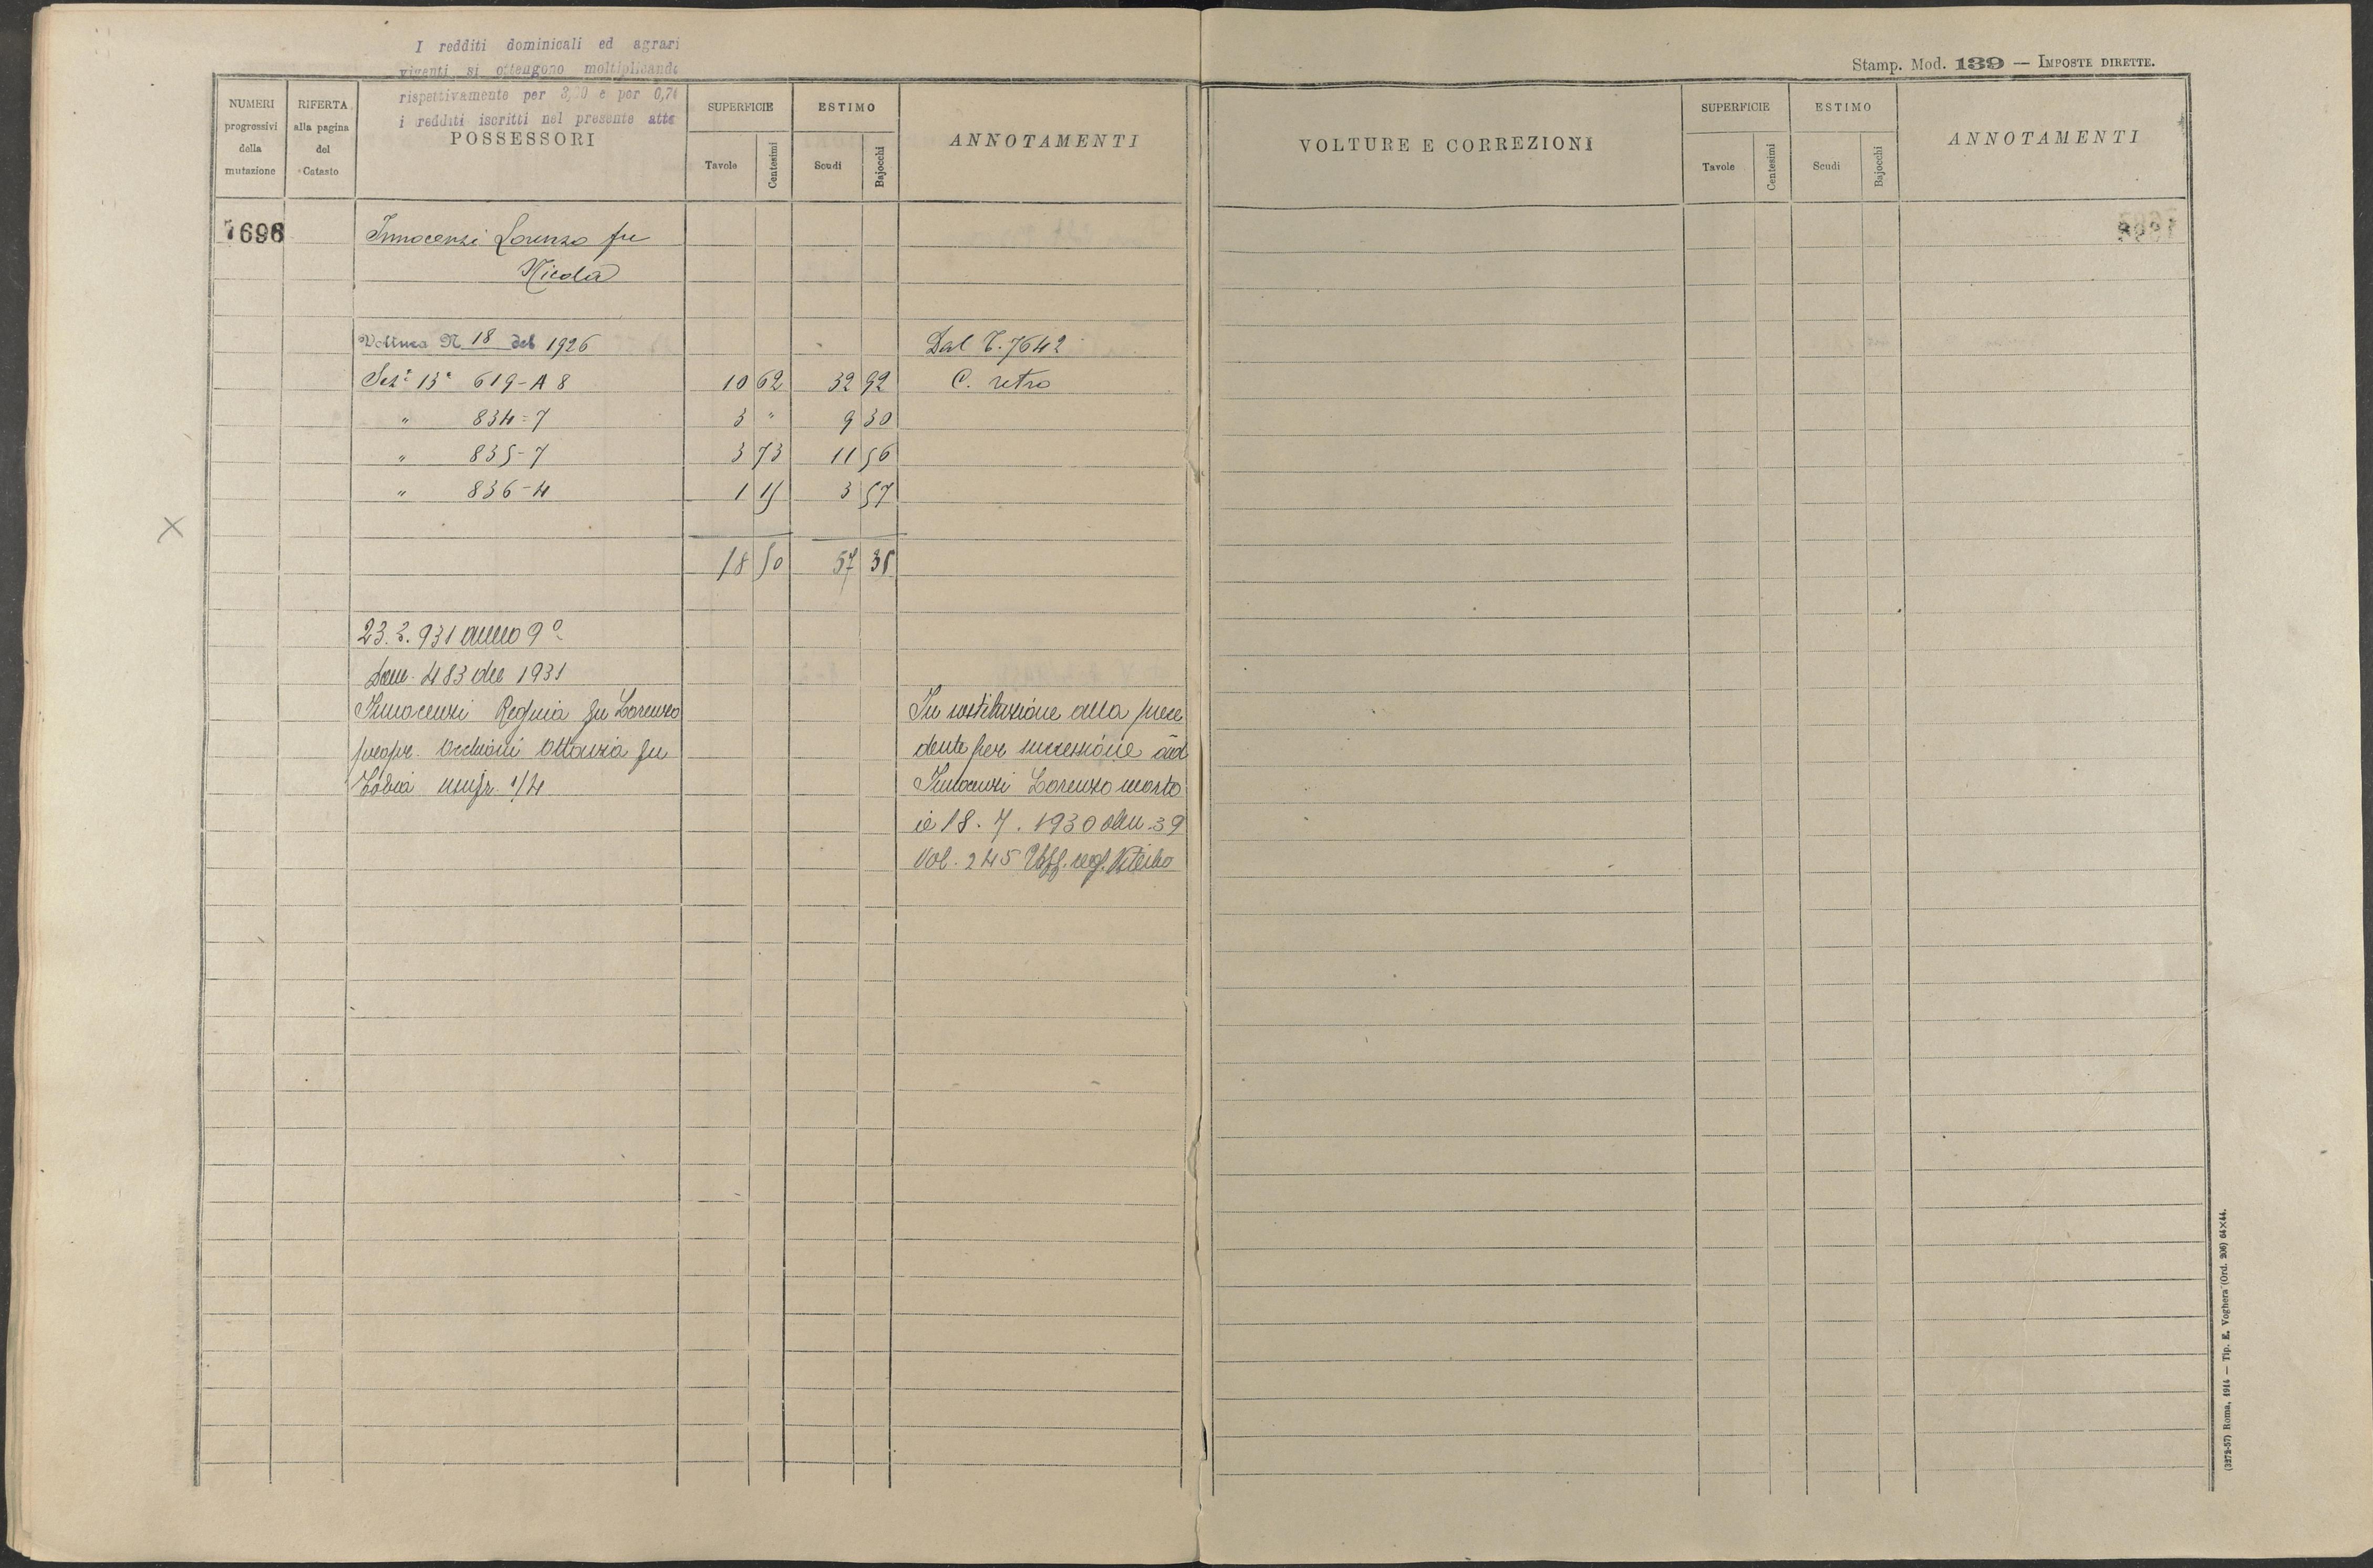 I redditi dominicali ed agrari
vigenti si ottengono moltiplicando
rispettivamente per 3,00 e per 0,74
i redditi iscritti nel presente atto
Stamp. Mod. 139 — IMPOSTE DIRETTE.
NUMERI progressivi della mutazione
RIFERTA alla pagina del Catasto
POSSESSORI
SUPERFICIE
Tavole Centesimi
ESTIMO
Scudi Bajocchi
ANNOTAMENTI
VOLTURE E CORREZIONI
SUPERFICIE
Tavole Centesimi
ESTIMO
Scudi Bajocchi
ANNOTAMENTI
7698 Innocenzi Lorenzo fu
Nicola
Voltura N. 18 del 1926 Dal T. 7642
Sez.e 13a 619-A 8 10 62 32 92 C. retro
" 834=7 3 " 9 30
" 835-7 3 73 11 56
" 836-4 1 15 3 57
18 50 57 35
23. 931 anno 9°
483 del 1931
Innocenzi fu Lorenzo In sostituzione alla prece
propr. Occhioni Ottavia fu dente per successione ad
Tobia usufr. 1/4 Innocenzi Lorenzo morto
il 18. 7. 1930 den. 39
Vol. 245 Uff. reg. Viterbo
(3272-57) Roma, 1914 — Tip. E. Voghera (Ord. 206) 64×44.